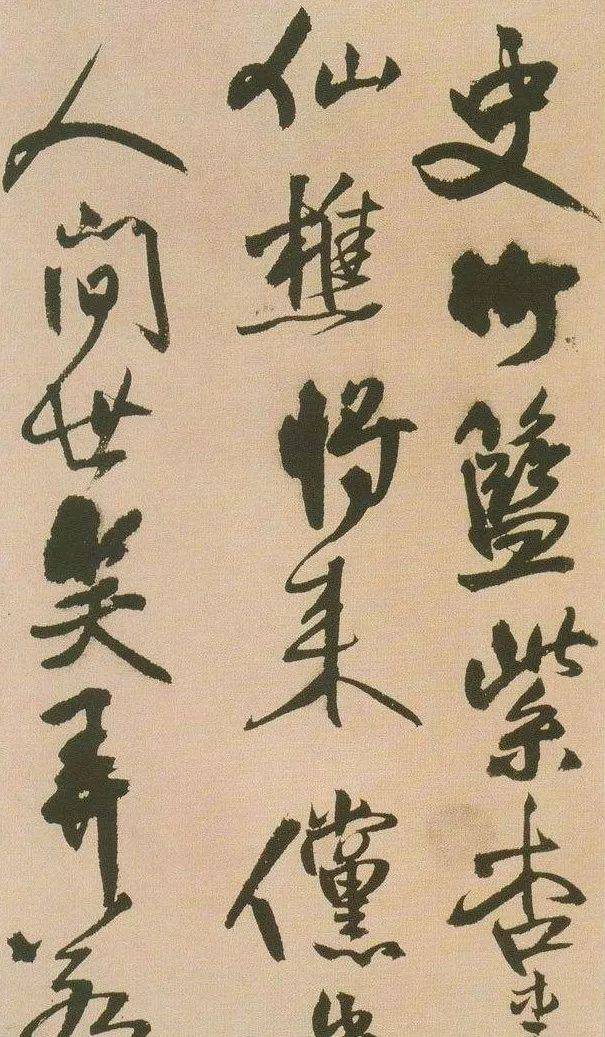 史竹籃紫杏
仙樵將來儻
人間世笑弄